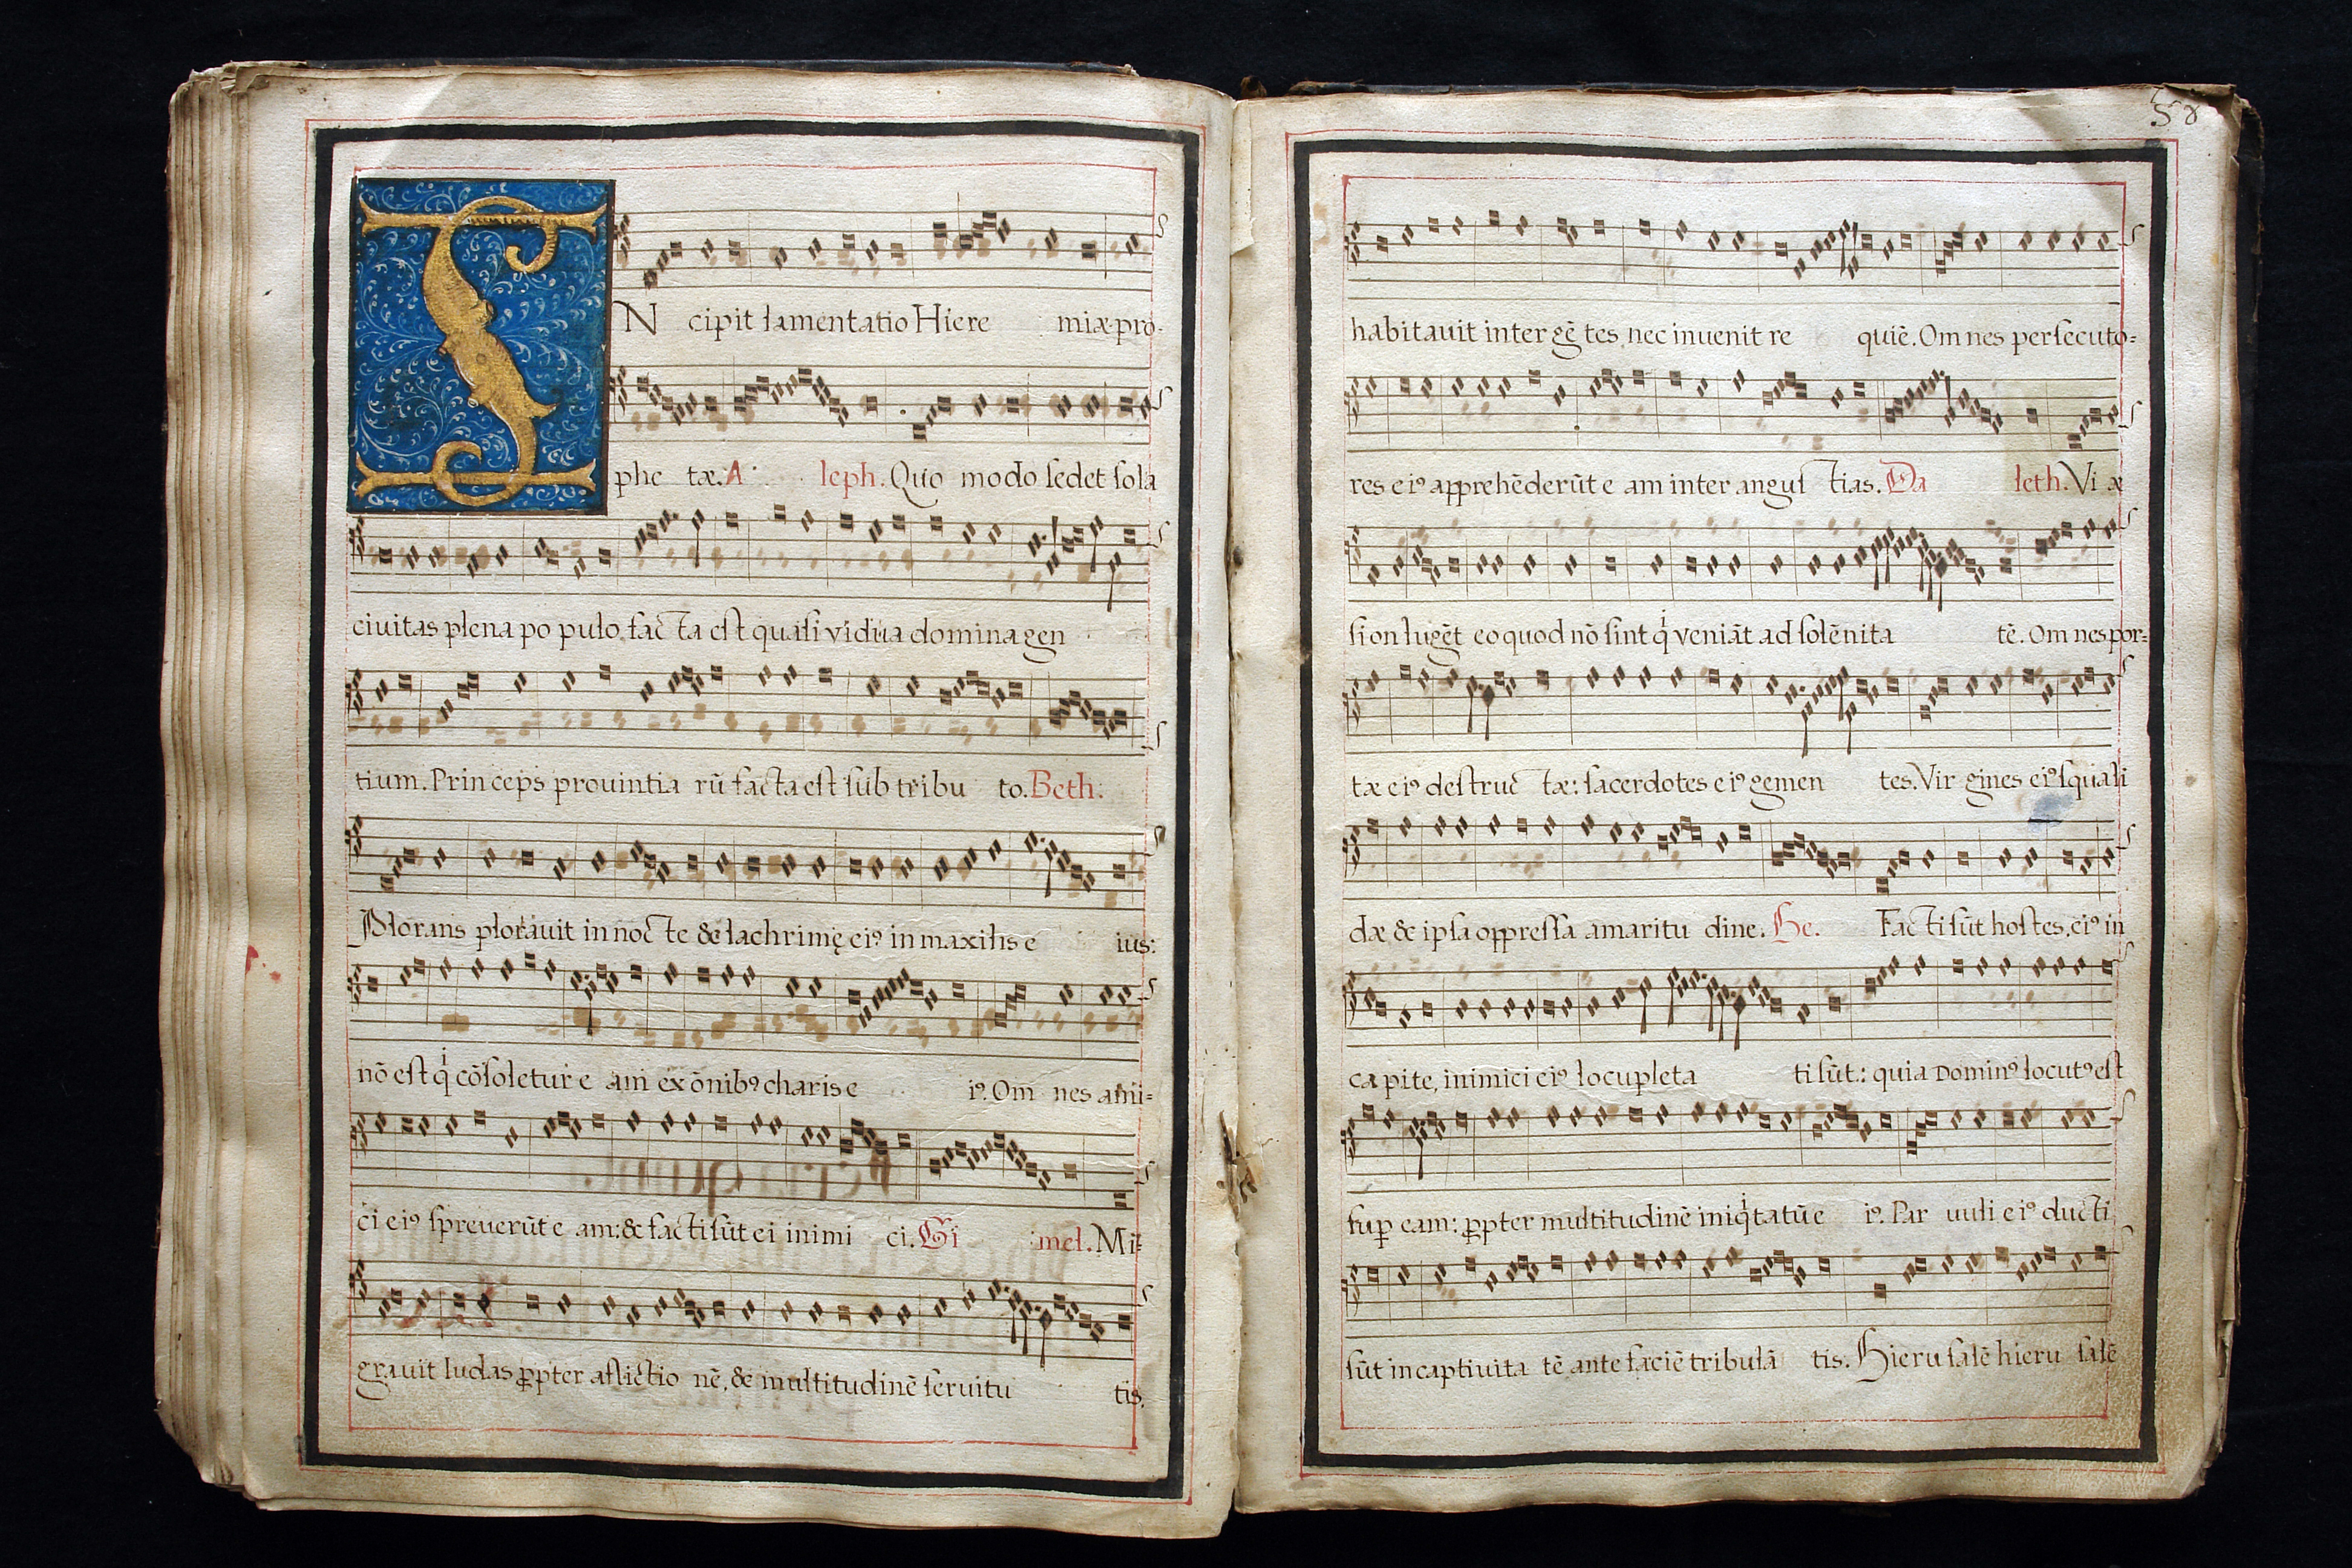 IN cipit lamentatio Hiere miæ pro-
phe tæ. A leph. Quo modo sedet sola
ciuitas plena po pulo fac ta est quasi vidua domina gen
tium. Prin ceps prouintia rū facta est sub tribu to. Beth.
Plorans plorauit in noc te & lachrimę eiꝰ in maxilis e ius:
nō est qͥ cōsoletur e am ex ōnibꝰ charis e iꝰ. Om nes ami-
ci eiꝰ spreuerūt e am: & facti sūt ei inimi ci. Gi mel. Mi-
grauit Iudas ꝓpter aflictio nē, & multitudinē seruitu tis.
58
habitauit inter gē tes, nec inuenit re quiē. Om nes persecuto-
res eiꝰ apprehēderūt e am inter angus tias. Da leth. Vi æ
sion lugēt eo quod nō sint qͥ veniāt ad solēnita tē. Om nes por-
tæ eiꝰ destruc tæ: sacerdotes eiꝰ gemen tes. Vir gines eiꝰ squali
dæ & ipsa oppressa amaritu dine. He. Facti sūt hostes, eiꝰ in
capite, inimici eiꝰ locupleta ti sūt: quia Dominꝰ locutꝰ est
suꝑ eam: ꝓpter multitudinē iniqͥtatū e iꝰ. Par uuli eiꝰ ducti
sūt in captiuita tē ante faciē tribulā tis. Hieru salē hieru salē